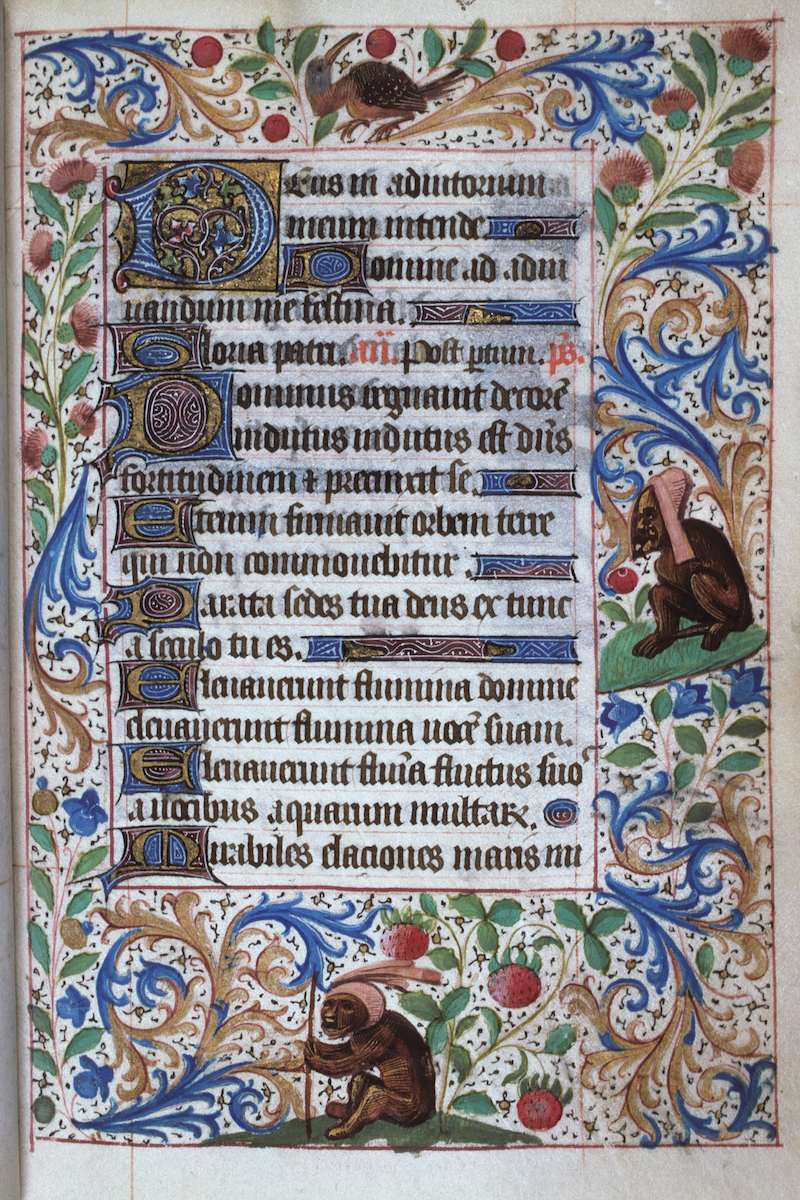 Deus in adiutorium
meum intende
Domine ad adiu
uandum me festina.
Gloria patri. an. Post ptum. ps.
Dominus regnauit decorē
indutus indutus est dn̄s
fortitudinem & precinxit se
Etenim firmauit orbem terre
qui non commouebitur
Parata sedes tua deus ex tunc
a seculo tu es.
Eleuauerunt flumina domine
eleuauerunt flumina uocē suam.
Eleuauerunt flūīa fluctus suo
a uocibus aquarum multaꝝ.
Mirabiles elaciones maris mi